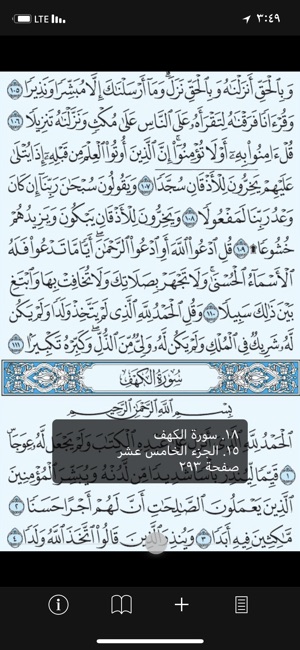 LTE ٣:٤٩
وَبِٱلْحَقِّ أَنزَلْنَٰهُ وَبِٱلْحَقِّ نَزَلَ ۗ وَمَآ أَرْسَلْنَٰكَ إِلَّا مُبَشِّرًا وَنَذِيرًا ١٠٥
وَقُرْءَانًا فَرَقْنَٰهُ لِتَقْرَأَهُۥ عَلَى ٱلنَّاسِ عَلَىٰ مُكْثٍ وَنَزَّلْنَٰهُ تَنزِيلًا ١٠٦
قُلْ ءَامِنُوا۟ بِهِۦٓ أَوْ لَا تُؤْمِنُوٓا۟ ۚ إِنَّ ٱلَّذِينَ أُوتُوا۟ ٱلْعِلْمَ مِن قَبْلِهِۦٓ إِذَا يُتْلَىٰ
عَلَيْهِمْ يَخِرُّونَ لِلْأَذْقَانِ سُجَّدًا ١٠٧ وَيَقُولُونَ سُبْحَٰنَ رَبِّنَآ إِن كَانَ
وَعْدُ رَبِّنَا لَمَفْعُولًا ١٠٨ وَيَخِرُّونَ لِلْأَذْقَانِ يَبْكُونَ وَيَزِيدُهُمْ
خُشُوعًا ۩ ١٠٩ قُلِ ٱدْعُوا۟ ٱللَّهَ أَوِ ٱدْعُوا۟ ٱلرَّحْمَٰنَ ۖ أَيًّا مَّا تَدْعُوا۟ فَلَهُ
ٱلْأَسْمَآءُ ٱلْحُسْنَىٰ ۚ وَلَا تَجْهَرْ بِصَلَاتِكَ وَلَا تُخَافِتْ بِهَا وَٱبْتَغِ
بَيْنَ ذَٰلِكَ سَبِيلًا ١١٠ وَقُلِ ٱلْحَمْدُ لِلَّهِ ٱلَّذِى لَمْ يَتَّخِذْ وَلَدًا وَلَمْ يَكُن
لَّهُۥ شَرِيكٌ فِى ٱلْمُلْكِ وَلَمْ يَكُن لَّهُۥ وَلِىٌّ مِّنَ ٱلذُّلِّ ۖ وَكَبِّرْهُ تَكْبِيرًۢا ١١١
سُورَةُ الكَهْفِ
بِسْمِ ٱللَّهِ ٱلرَّحْمَٰنِ ٱلرَّحِيمِ
ٱلْحَمْدُ لِلَّهِ ٱلَّذِىٓ أَنزَلَ عَلَىٰ عَبْدِهِ ٱلْكِتَٰبَ وَلَمْ يَجْعَل لَّهُۥ عِوَجَا
١ قَيِّمًا لِّيُنذِرَ بَأْسًا شَدِيدًا مِّن لَّدُنْهُ وَيُبَشِّرَ ٱلْمُؤْمِنِينَ
ٱلَّذِينَ يَعْمَلُونَ ٱلصَّٰلِحَٰتِ أَنَّ لَهُمْ أَجْرًا حَسَنًا ٢
مَّٰكِثِينَ فِيهِ أَبَدًا ٣ وَيُنذِرَ ٱلَّذِينَ قَالُوا۟ ٱتَّخَذَ ٱللَّهُ وَلَدًا ٤
١٨. سورة الكهف
١٥. الجزء الخامس عشر
صفحة ٢٩٣